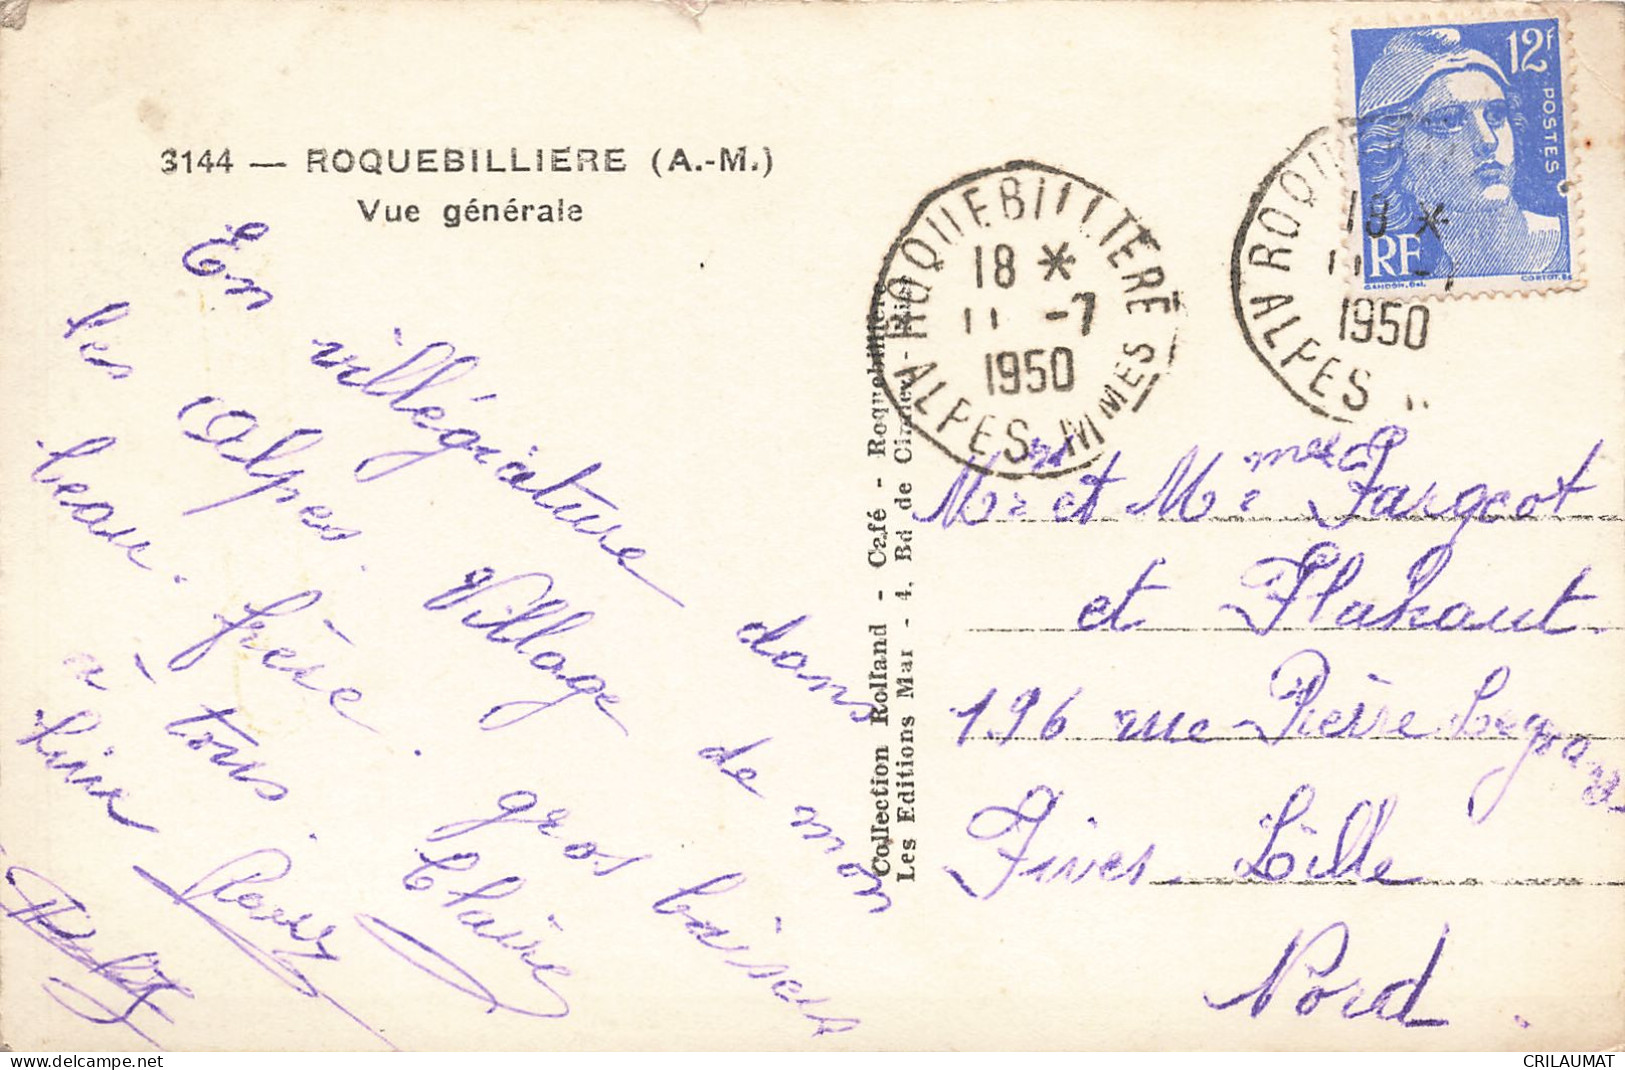 3144 — ROQUEBILLIERE (A.-M.)
Vue générale
En villégiature dans
les Alpes. Village de mon
beau. frère. gros baises
à tous. Claire
Collection Rolland - Café - Roquebillière
Les Editions Mar - 4, Bd de Cimiez - Nice
ROQUEBILLIERE
18 *
11 -7
1950
ALPES MMES
12f
POSTES
RF
GANDON, Del.
CORTOT, Sc
ROQUE
18 *
11 -7
1950
ALPES
Mr et Mme Fargeot
et Flahaut.
196 rue Pierre Legrand
Fives. Lille
Nord.
delcampe.net
CRILAUMAT